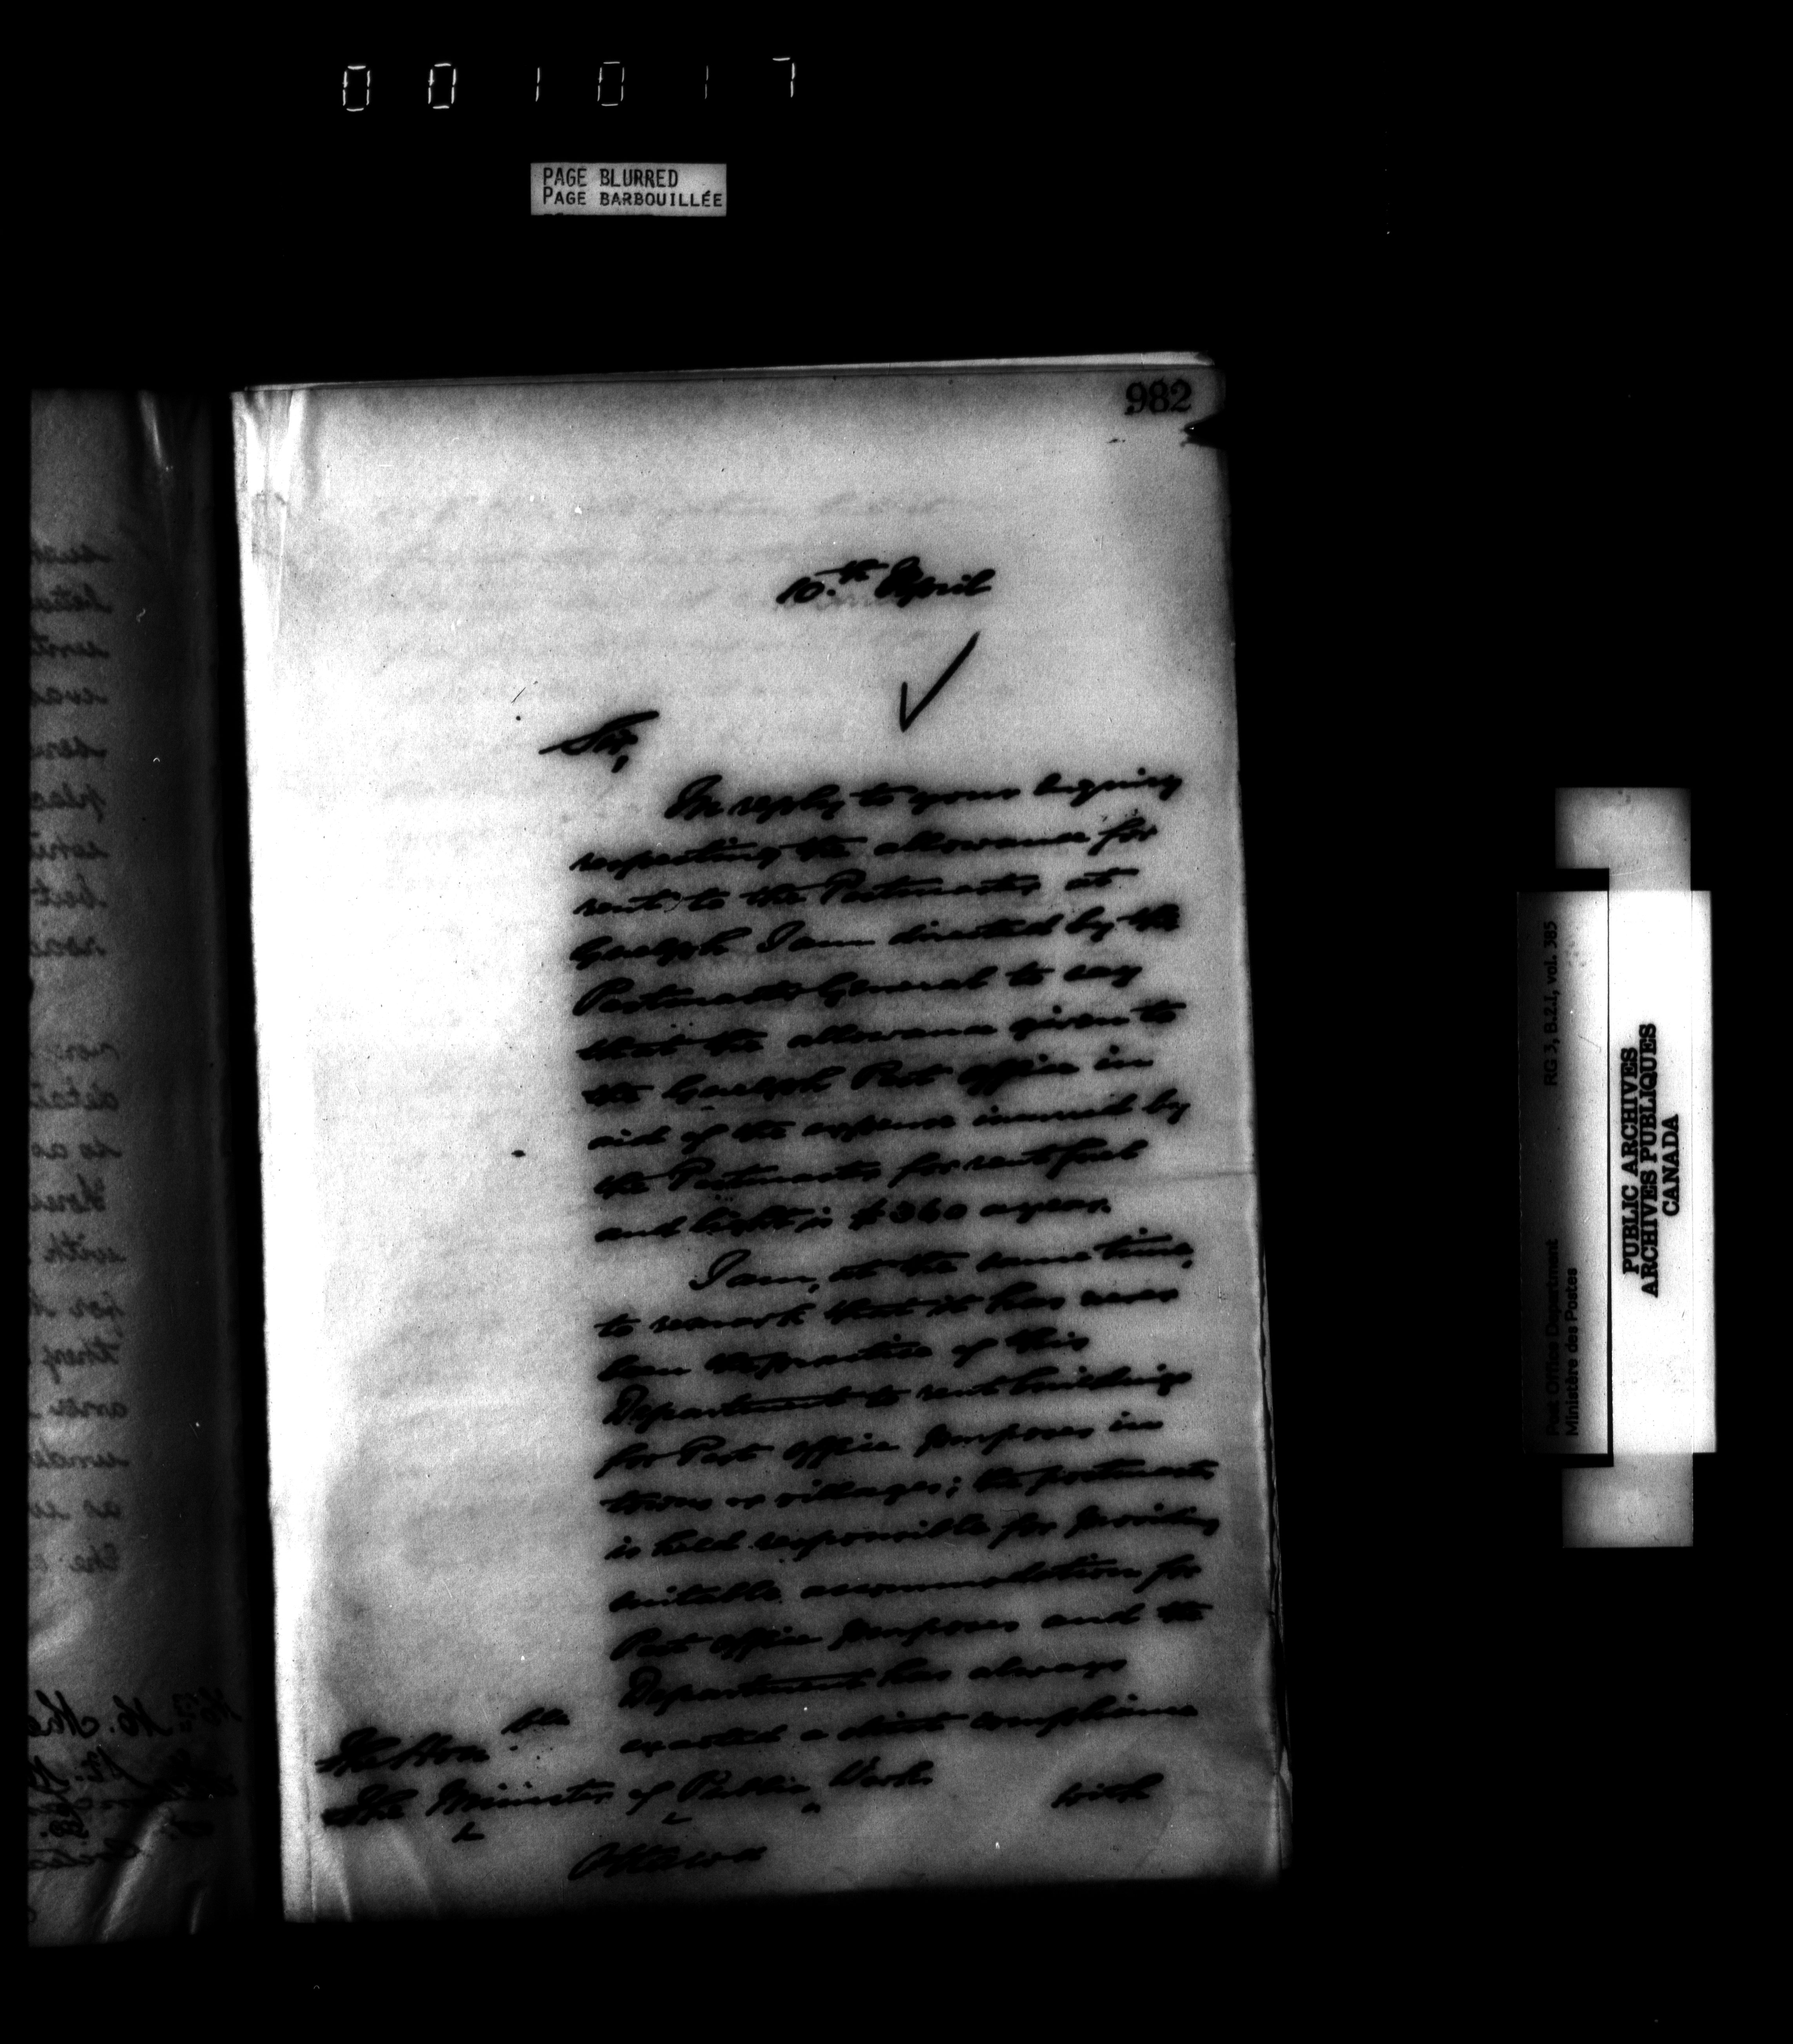 001017
PAGE BLURRED
PAGE BARBOUILLÉE
982
10.th April
Sir,
In reply to your enquiry
respecting the allowance for
rent to the Postmaster at
Guelph I am directed by the
Postmaster General to say
that the allowance given to
the Guelph Post Office in
aid of the expense incurred by
the Postmaster for rent fuel
and light is $360 a year.
I am, at the same time,
to remark that it has never
been the practice of this
Department to rent buildings
for Post Office purposes in
towns or villages; the postmaster
is held responsible for providing
suitable accommodation for
Post Office purposes and the
Department has always
exacted a strict compliance
with
The Honble
The Minister of Public Works
Ottawa
Post Office Department RG 3, B.2.1, vol. 385
Ministère des Postes
PUBLIC ARCHIVES
ARCHIVES PUBLIQUES
CANADA